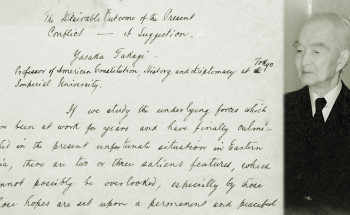 The Desirable Outcome of the Present
Conflict — A Suggestion.
Yasaka Takagi
Professor of American Constitution, History and Diplomacy at Tokyo
Imperial University.
If we study the underlying forces which
ve been at work for years and have finally culmi-
ted in the present unfortunate situation in Eastern
ia, there are two or three salient features, which
nnot possibly be overlooked, especially by those
hose hopes are set upon a permanent and peaceful